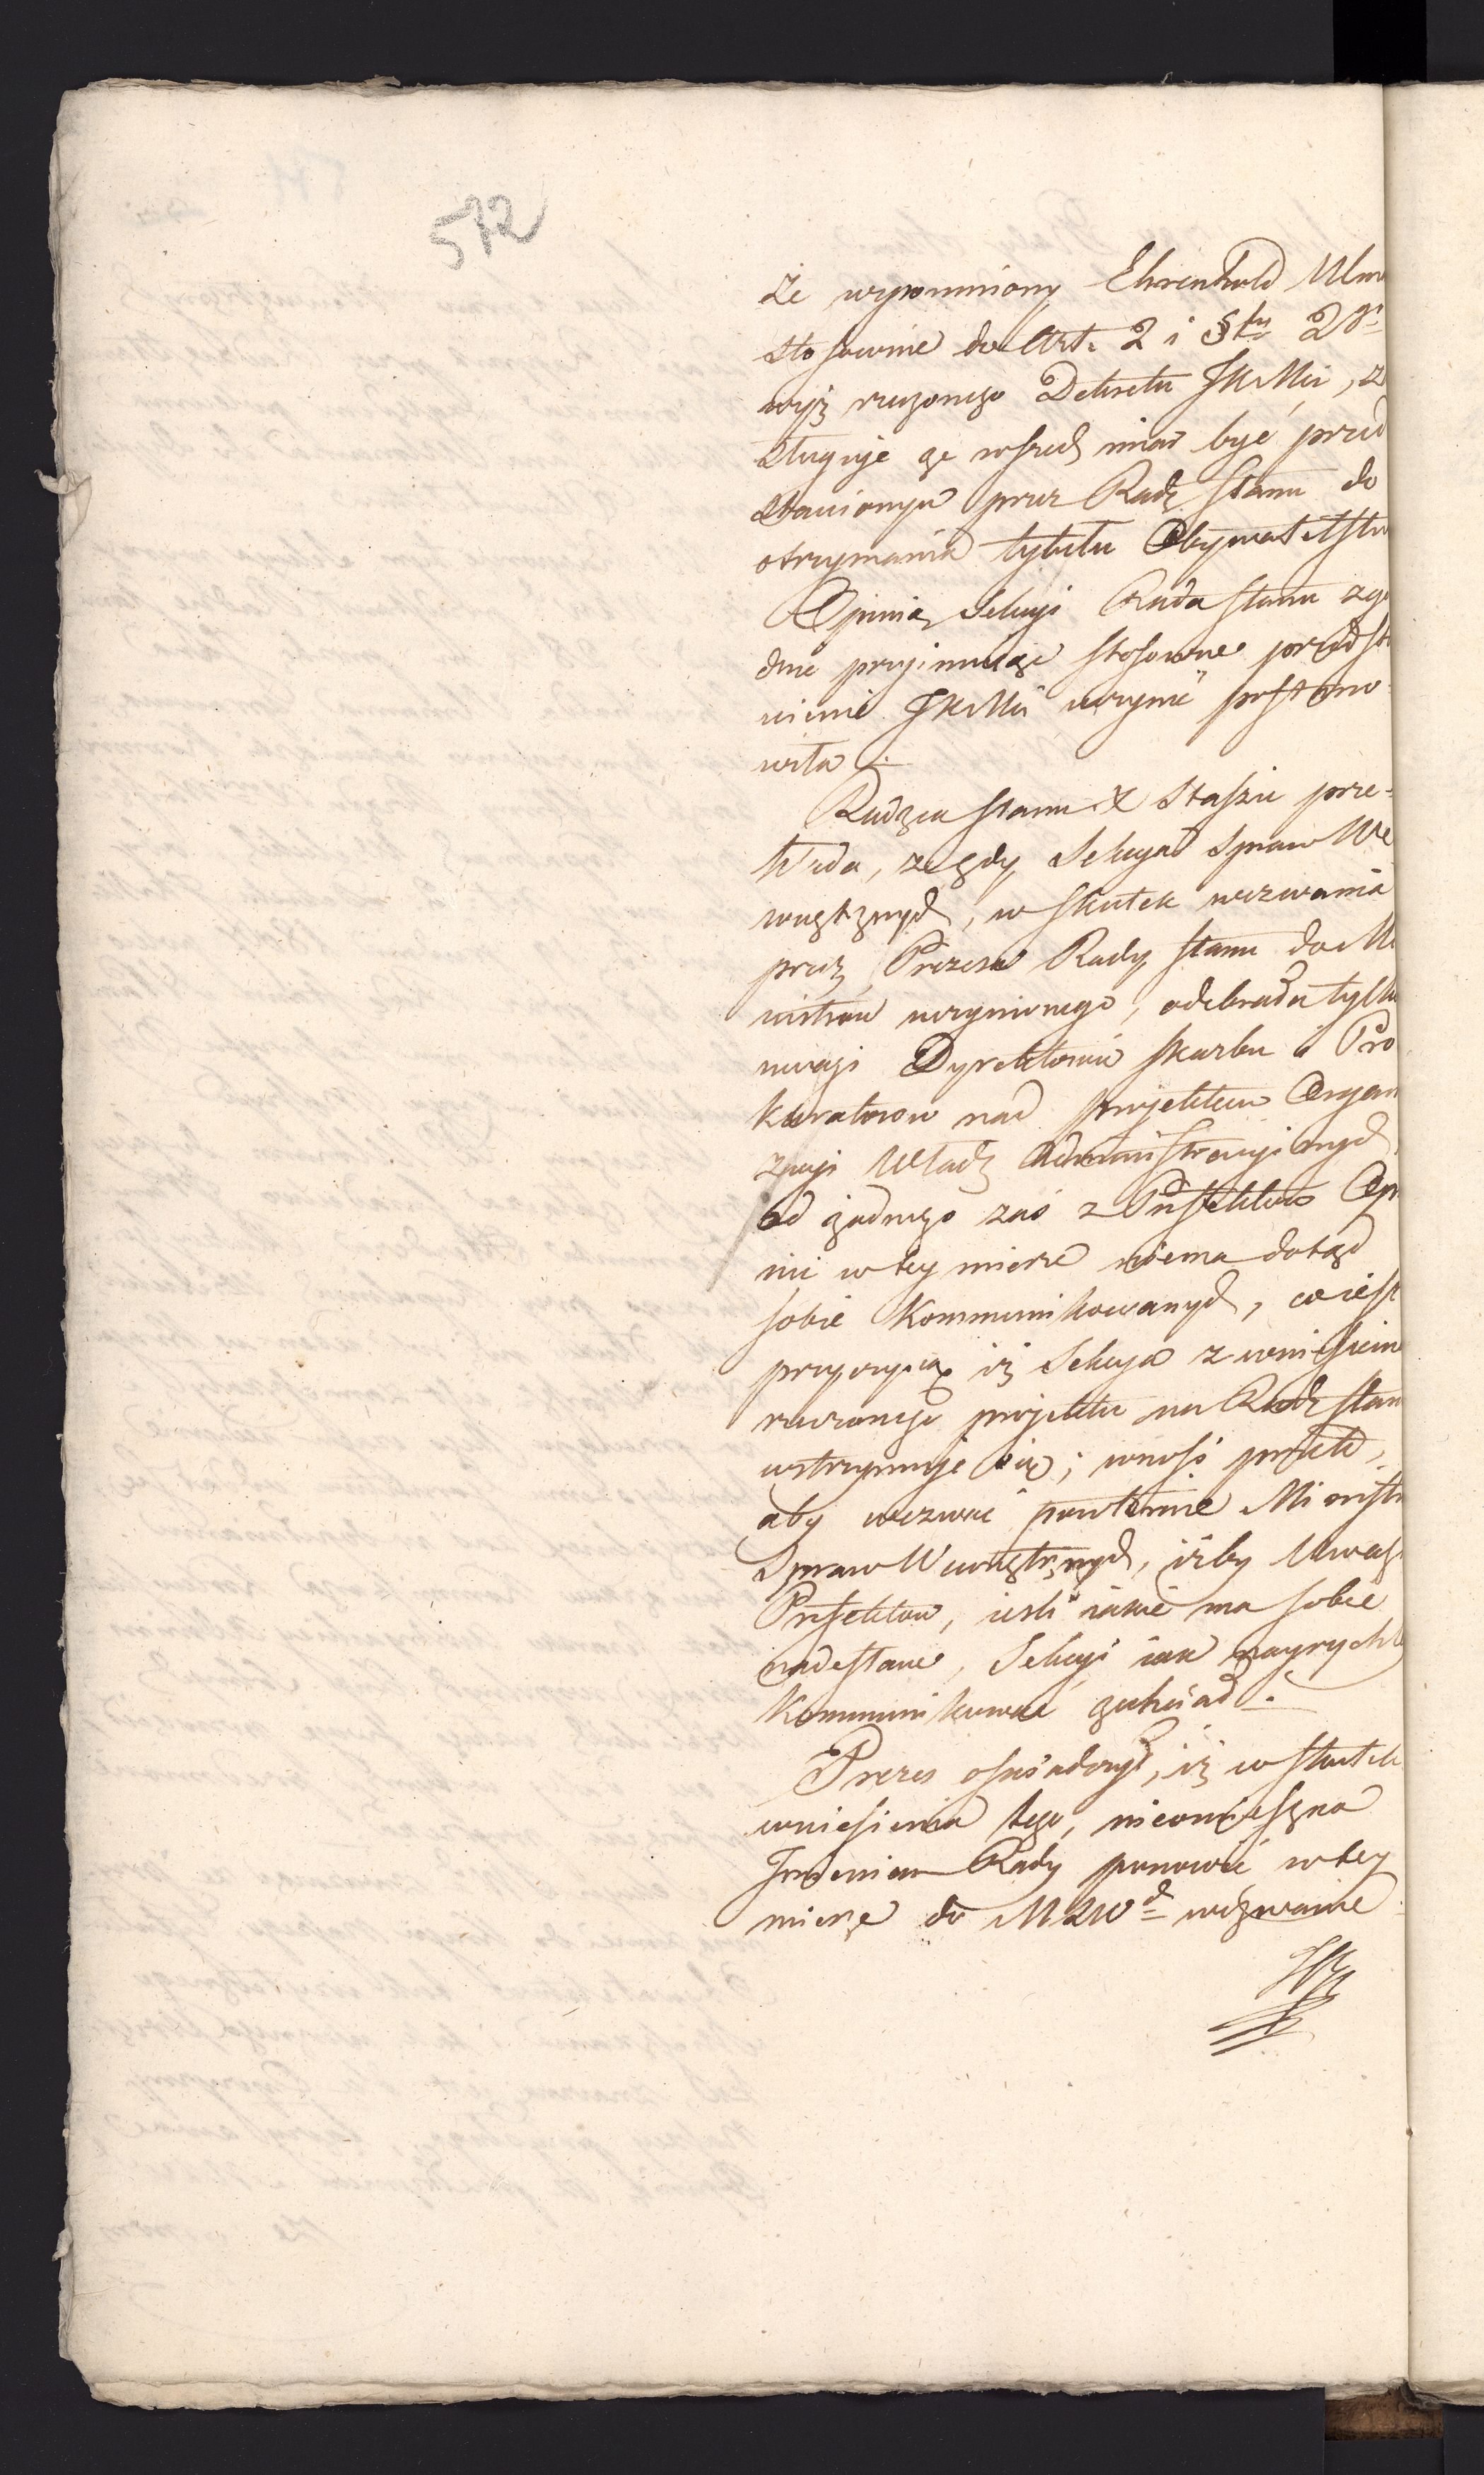 572
że wspomniony Ehrenhold Ulm
stosownie do Art. 2 i §fu 2go
wyż rzeczonego Dekretu JKMci, za
sługuje ze wszech miar być przed
stawionym przez Radę Stanu do
otrzymania tytułu Obywatelstw
Opinią Sekcyi Rada Stanu zgo
dnie przyimuiąc stosowne przedsta
wienie JKMci uczynić postano-
wiła.
Radzca Stanu X Staszic prze-
kłada, że gdy Sekcya Spraw We
wnętznych, w skutek wezwania
przez Prezesa Rady Stanu do Mi
nistrow uczynionego, odebrała tylko
uwagi Dyrektorów Skarbu i Pro
kuratorow nad projektem Organi
zacyi Władz Administracyinych
od żadnego zaś z Prefektow Opi
nii w tey mierze niema dotąd
sobie kommunikowanych, co iest
przyczyną iż Sekcya z wniesieniem
rzeczonego projektu na Radę Stanu
wstrzymuje się; wnosi przeto,
aby wezwać powtórnie Ministra
Spraw Wewnętrznych, iżby Uwagi
Prefektow, iesli iakie ma sobie
nadesłane, Sekcyi iak nayrychley
kommunikować zechciał.
Prezes oświadczył, iż w skutek
wniesienia tego, nieomieszka
Imieniem Rady ponowić w tey
mierze do MSWch wezwanie